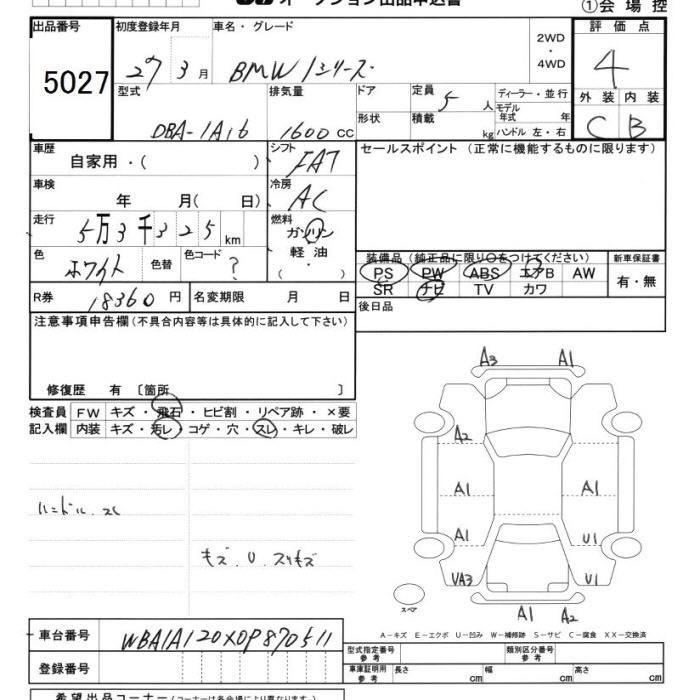 オークション出品申込書
①会場控
出品番号
5027
初度登録年月
27 3月
車名・グレード
BMW 1シリーズ
2WD
・
4WD
評価点
4
外装 内装
C B
型式
DBA-1A16
排気量
1600 cc
ドア
形状
定員
5 人
積載
kg
ディーラー・並行
モデル年式 年
ハンドル 左・右
車歴
自家用・( )
シフト
FAT
セールスポイント (正常に機能するものに限ります)
車検
年 月( 日)
冷房
AC
走行
5万3千325km
燃料
ガソリン
・
軽油
( )
色
ホワイト
色替
色コード
?
装備品 (純正品に限り○をつけてください)
PS PW ABS エアB AW
SR ナビ TV カワ
新車保証書
有・無
R券
18360円
名変期限 月 日
後日品
注意事項申告欄(不具合内容等は具体的に記入して下さい)
修復歴 有 〔箇所 〕
検査員
記入欄
FW キズ・飛石・ヒビ割・リペア跡・×要
内装 キズ・汚レ・コゲ・穴・スレ・キレ・破レ
ハンドル.スレ
キズ.U.スリキズ
A3 A1
A2
A1 A1
A1 U1
VA3 U1
A1 A2
スペア
A-キズ E-エクボ U-凹み W-補修跡 S-サビ C-腐食 XX-交換済
車台番号
WBA1A120X0P870511
登録番号
型式指定番号
参考
類別区分番号
参考
車庫証明用
参考
長さ cm 幅 cm 高さ cm
希望出品コーナー(コーナーは各会場により異なります)